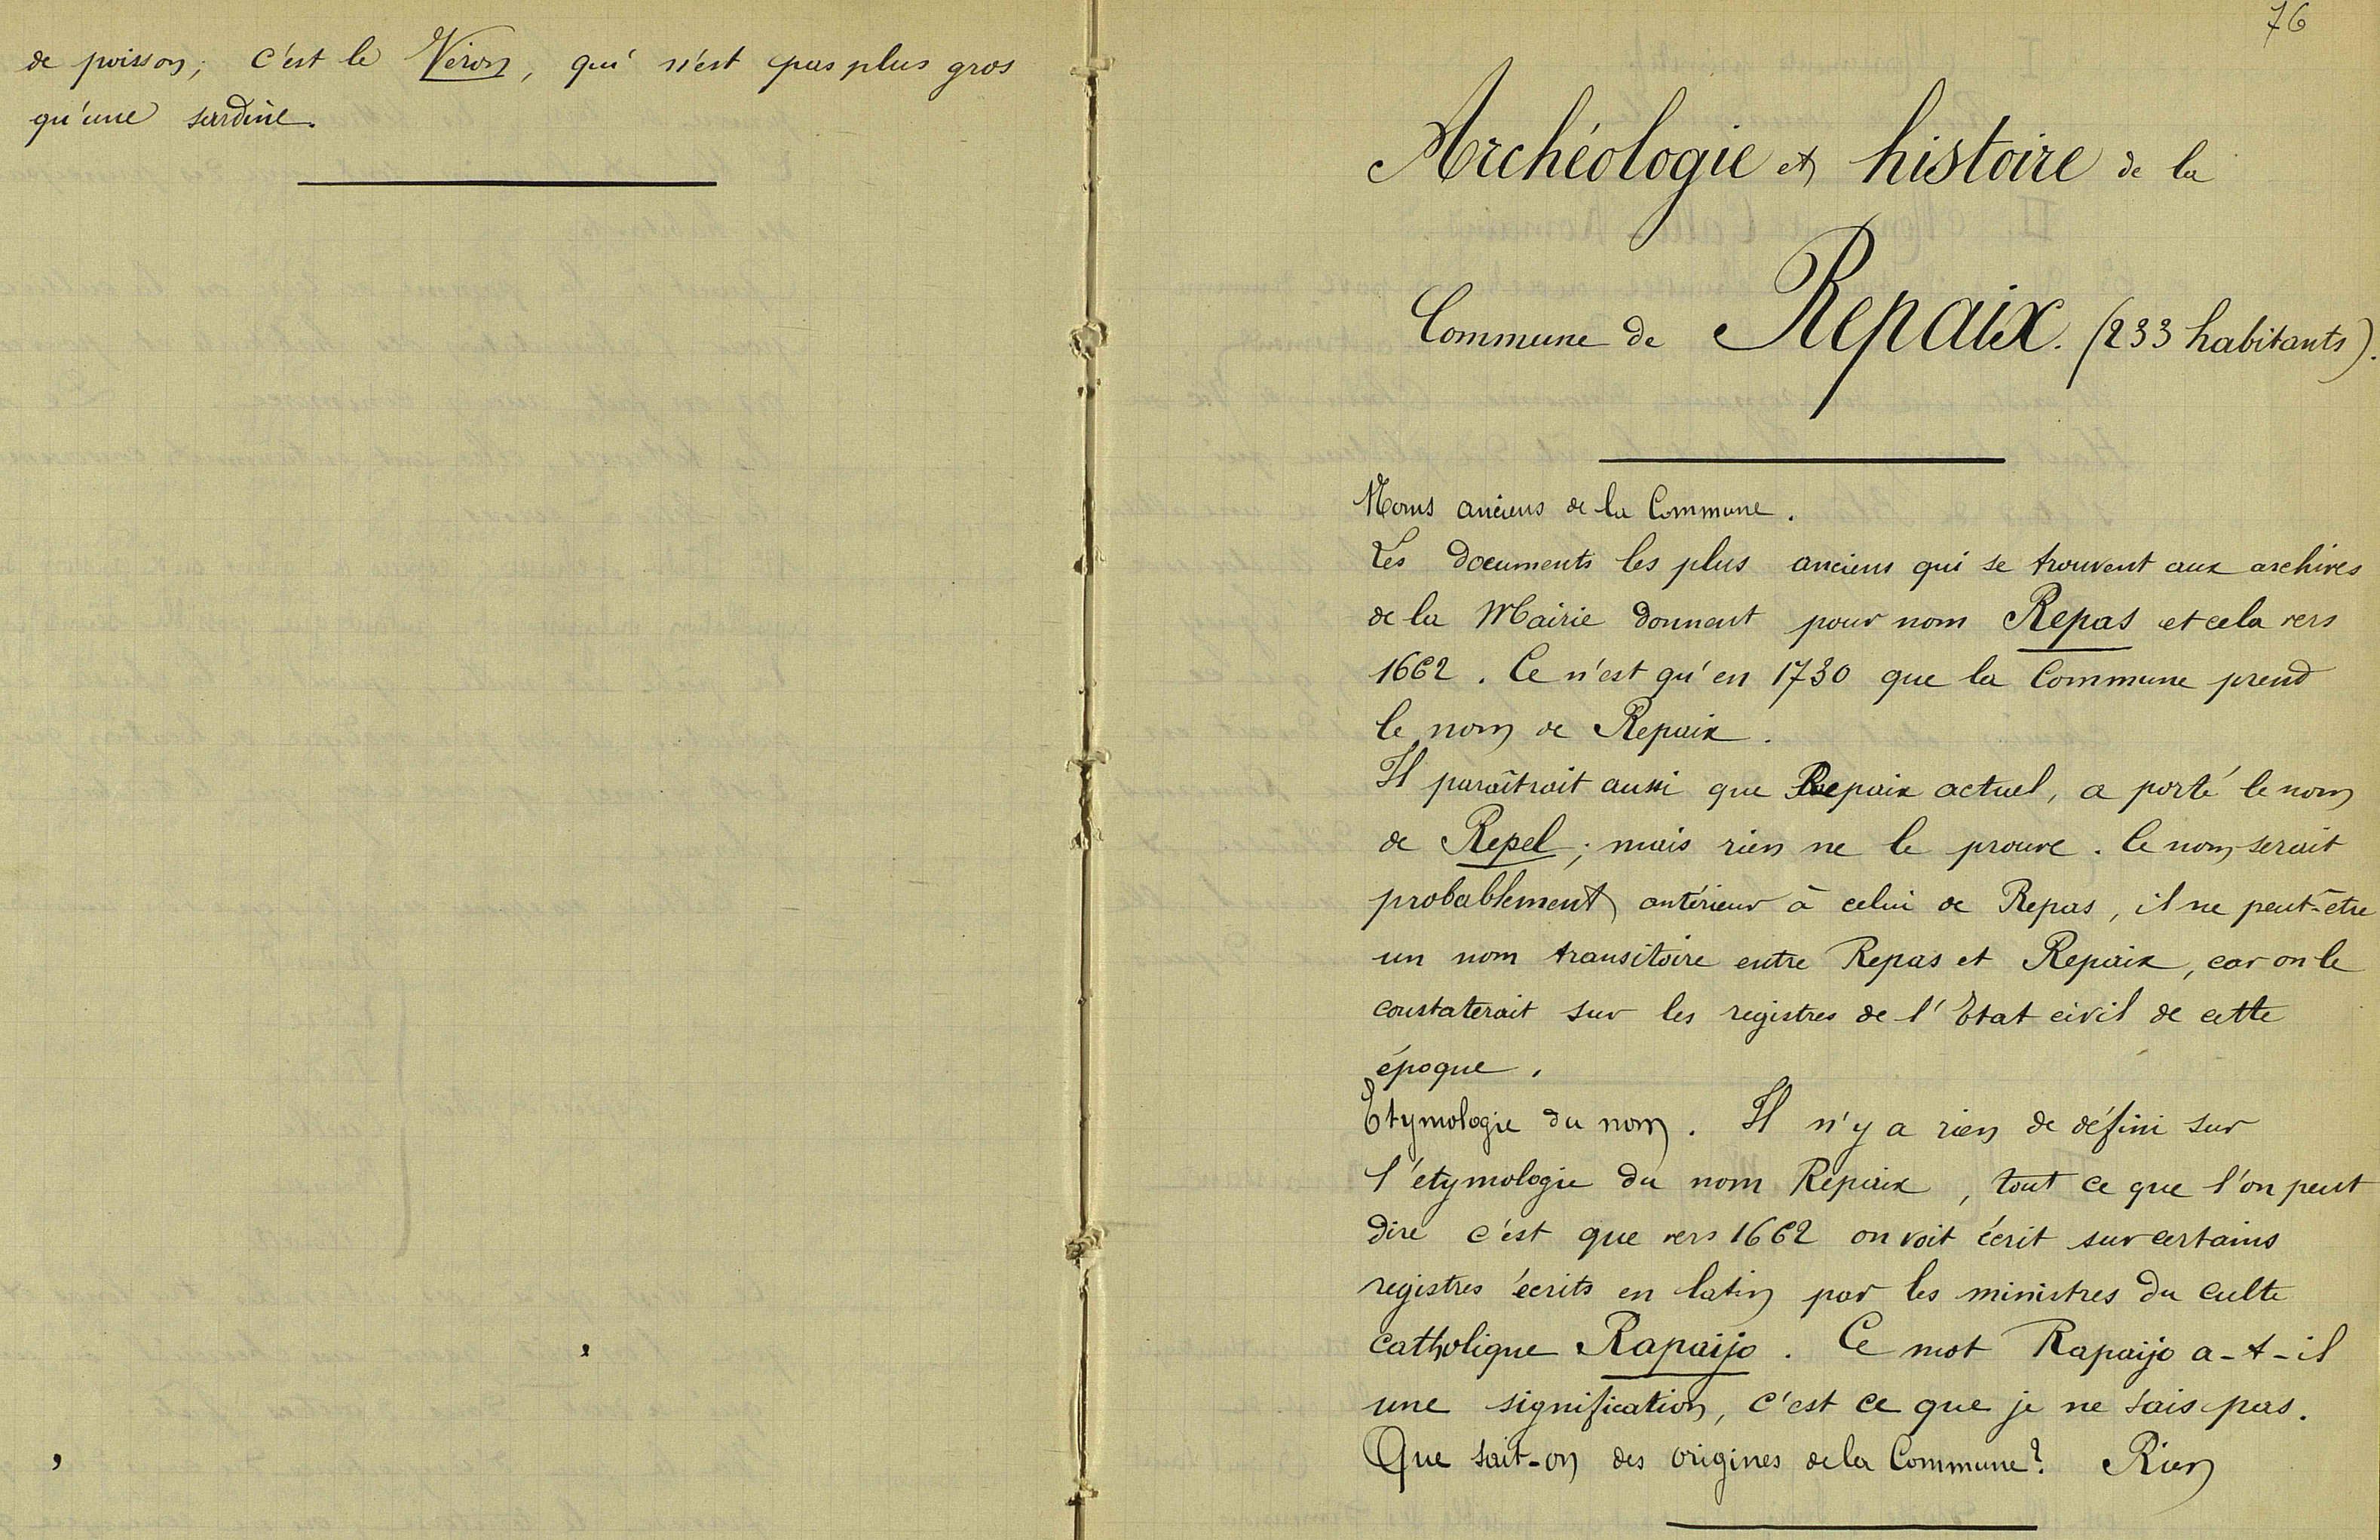 de poisson; c'est le Véron, qui n'est pas plus gros
qu'une sardine.
76
Archéologie et histoire de la
Commune de Repaix. (233 habitants).
Noms anciens de la Commune.
Les documents les plus anciens qui se trouvent aux archives
de la Mairie donnent pour nom Repas et cela vers
1662. Ce n'est qu'en 1730 que la Commune prend
le nom de Repaix.
Il paraîtrait aussi que Repaix actuel, a porté le nom
de Repel; mais rien ne le prouve. Ce nom serait
probablement antérieur à celui de Repas, il ne peut-être
un nom transitoire entre Repas et Repaix, car on le
constaterait sur les registres de l'Etat civil de cette
époque.
Etymologie du nom. Il n'y a rien de défini sur
l'étymologie du nom Repaix, tout ce que l'on peut
dire c'est que vers 1662 on voit écrit sur certains
registres écrits en latin par les ministres du culte
catholique Rapaijo. Ce mot Rapaijo a-t-il
une signification, c'est ce que je ne sais pas.
Que sait-on des origines de la Commune? Rien